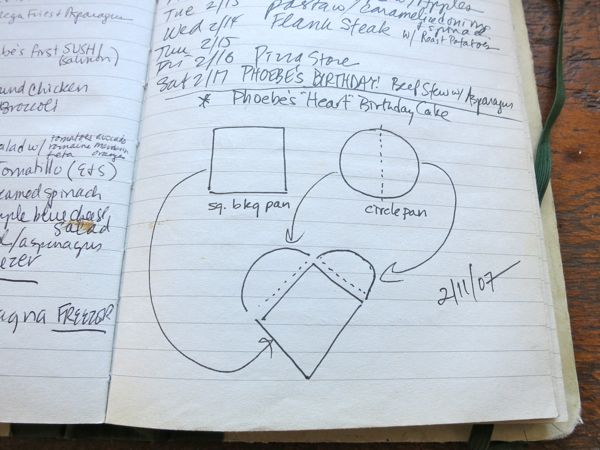 Mega Fries + Asparagus
be's first SUSHI
(salmon)
und Chicken
Broccoli
alad w/ tomatoes avocado
romaine
feta oranges
Tomatillo (E+S)
eamed spinach
ple blue cheese
salad
d/asparagus
eezer
agna FREEZER
Tue 2/13 Pasta w/
Wed 2/14 Flank Steak w/ Roast Potatoes
Thu 2/15
Fri 2/16 Pizza Store
Sat 2/17 PHOEBE'S BIRTHDAY! Beef Stew w/ Asparagus
* Phoebe's "Heart" Birthday Cake
sq. bkg pan
circle pan
2/11/07